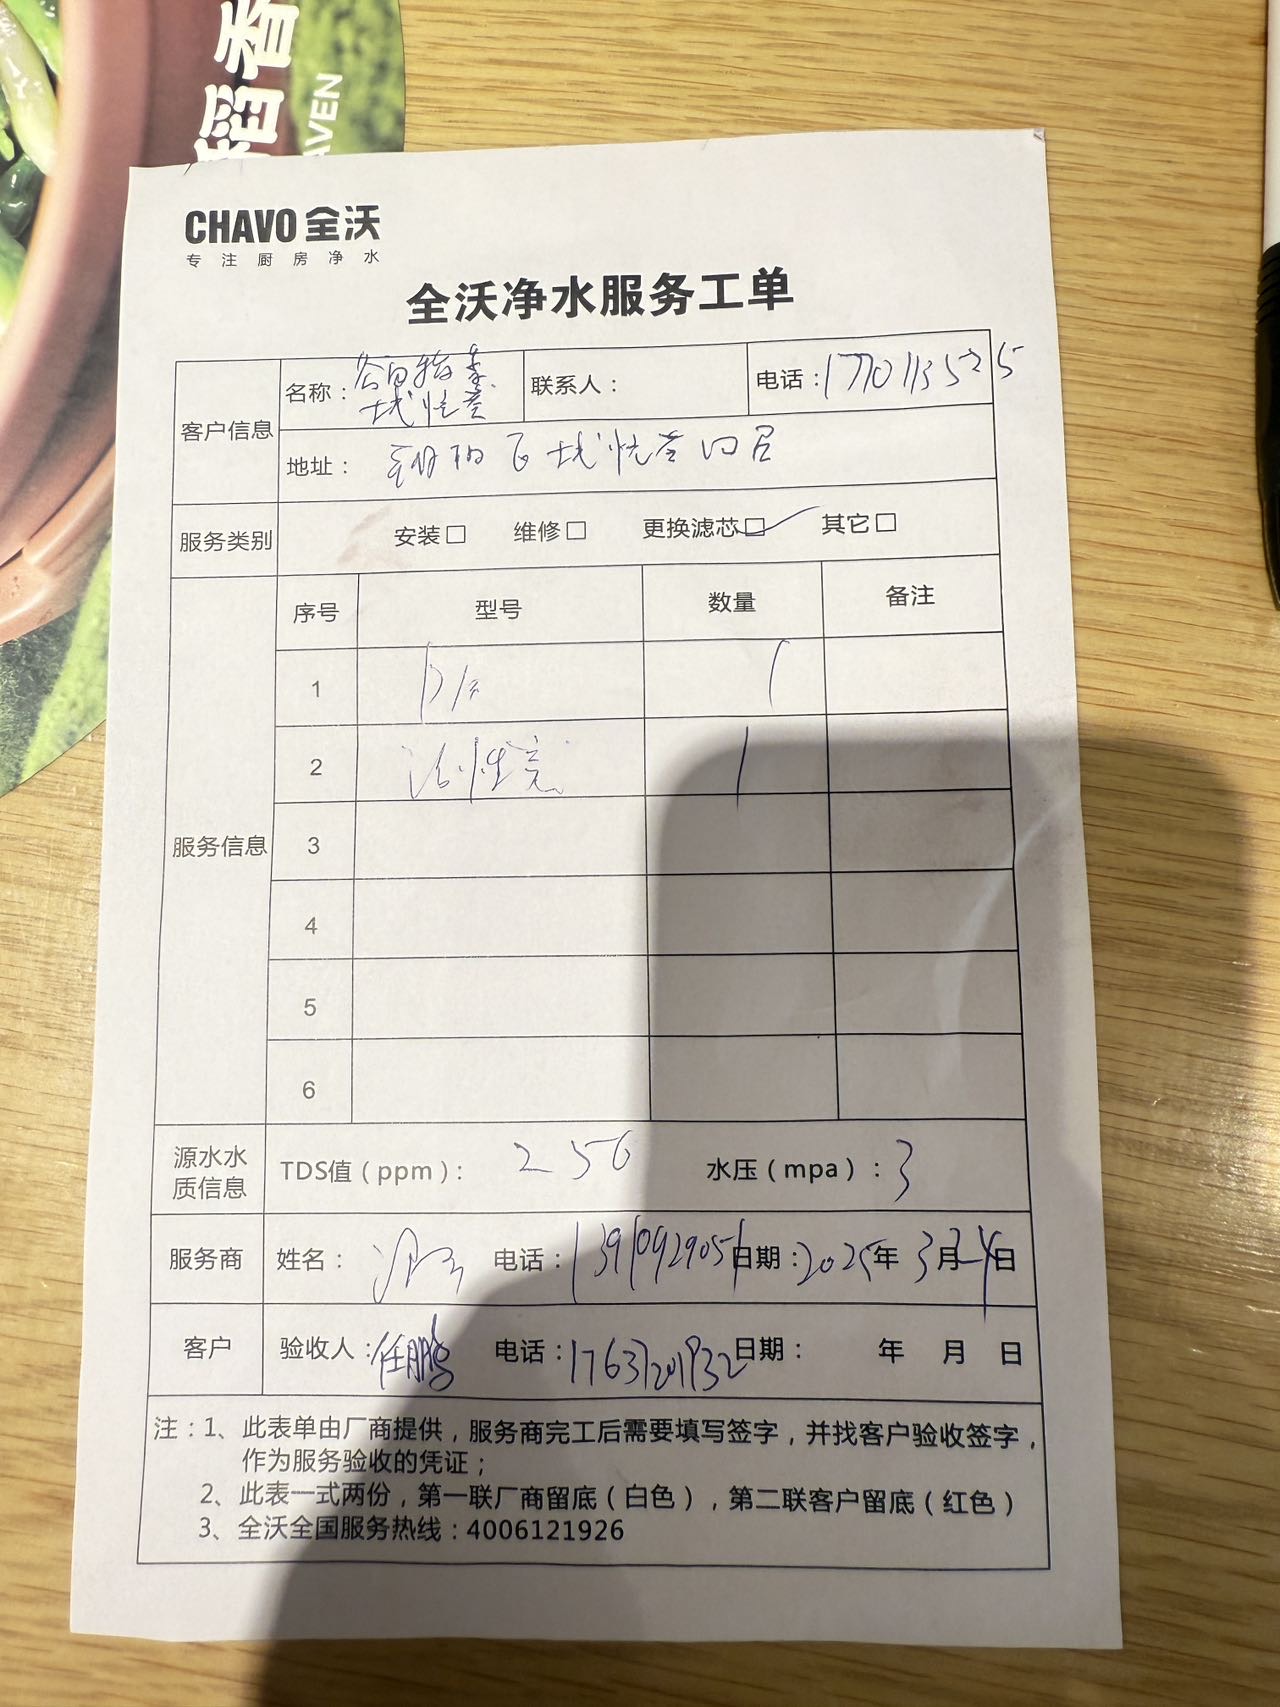 稻香
AVEN
CHAVO 全沃
专注厨房净水
全沃净水服务工单
客户信息 名称： 联系人： 电话：17710113525
地址：
服务类别 安装□ 维修□ 更换滤芯□✓ 其它□
服务信息 序号 型号 数量 备注
1 1
2 活性炭 1
3
4
5
6
源水水质信息 TDS值（ppm）：256 水压（mpa）：3
服务商 姓名： 电话：13910929051 日期：2025年3月24日
客户 验收人：任鹏 电话：17637201932 日期： 年 月 日
注：1、此表单由厂商提供，服务商完工后需要填写签字，并找客户验收签字，
作为服务验收的凭证；
2、此表一式两份，第一联厂商留底（白色），第二联客户留底（红色）
3、全沃全国服务热线：4006121926